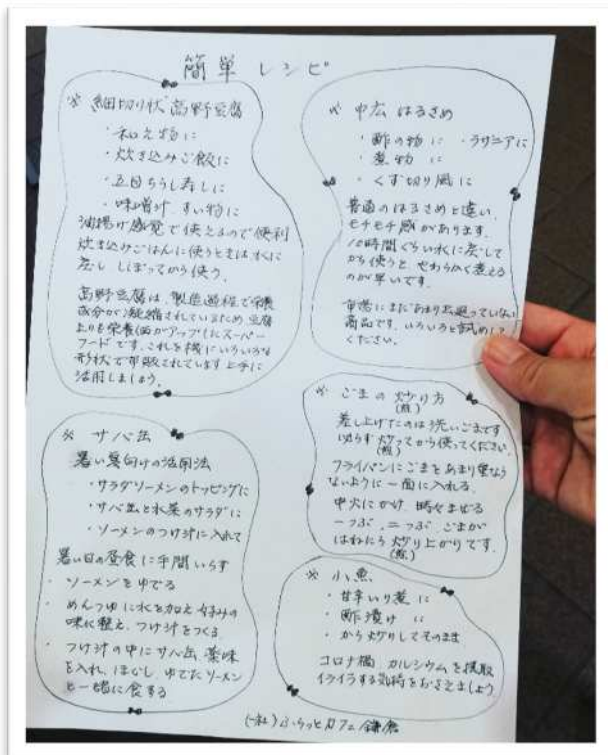 簡単レシピ
※ 細切り状 高野豆腐
・和え物に
・炊き込みご飯に
・五目ちらし寿しに
・味噌汁、すい物に
油揚げ感覚で使えるので便利
炊き込みごはんに使うときは水に
戻し しぼってから使う。
高野豆腐は、製造過程で栄養
成分が凝縮されているため、豆腐
よりも栄養価がアップしたスーパー
フードです。これを機にいろいろな
形状で市販されています 上手に
活用しましょう。
※ サバ缶
暑い夏向けの活用法
・サラダソーメンのトッピングに
・サバ缶と水菜のサラダに
・ソーメンのつけ汁に入れて
暑い日の昼食に手間いらず
・ソーメンをゆでる
・めんつゆに水を加え 好みの
味に整え、つけ汁をつくる
・つけ汁の中にサバ缶、薬味
を入れ、ほぐし、ゆでたソーメン
と一緒に食する
※ 中広 はるさめ
・酢の物に ・ラザニアに
・煮物 に
・くず切り風に
普通のはるさめと違い、
モチモチ感があります。
10時間ぐらい水に戻して
から使うと、やわらかく煮える
のが早いです。
市場にまだあまり出廻っていない
商品です。いろいろと試めして
ください。
※ ごまの炒り方
(煎)
差し上げたのは洗いごまです
必らず炒ってから使ってください。
(煎)
フライパンにごまをあまり重なら
ないように一面に入れる。
中火にかけ 時々まぜる
一つぶ、二つぶ、ごまが
はねたら炒り上がりです。
(煎)
※ 小魚
・甘辛いり煮に
・酢漬けに
・から炒りしてそのまま
コロナ禍、カルシウムを摂取
イライラする気持をおさえましょう
(一社)ふらっとカフェ鎌倉